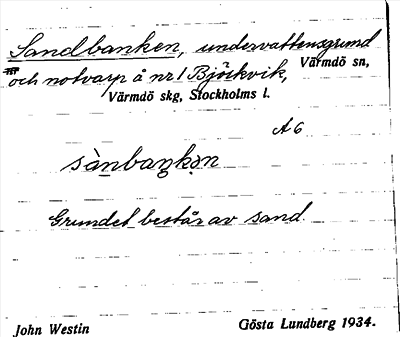 Sandbanken, undervattensgrund
och notvarp å nr 1 Björkvik, Värmdö sn,
Värmdö skg, Stockholms l.
A6
sànbaŋkən
Grundet består av sand.
John Westin Gösta Lundberg 1934.